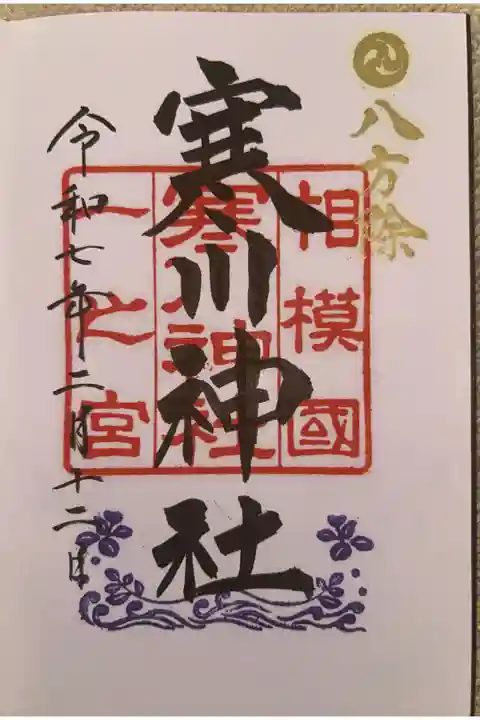 八方除
相模國
寒川神社
一之宮
寒川神社
令和七年二月十二日